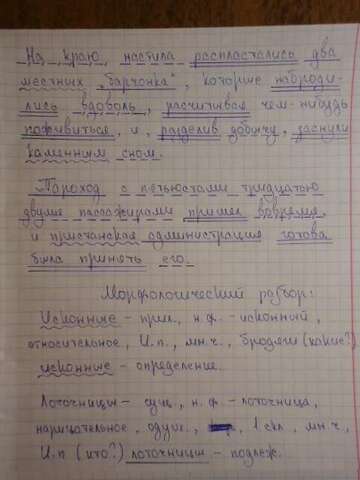 На краю настила распластались два
местных „барчонка", которые наброди-
лись вдоволь, расчитывая чем-нибудь
поживиться, и, разделив добычу, заснули
каменным сном.
Пароход с пятьюстами тридцатью
двумя пассажирами пришел вовремя,
и пристанская администрация готова
была принять его.
Морфологический разбор:
Исконные - прил., н.ф. - исконный,
относительное, И.п., мн.ч., бродяги (какие?)
исконные - определение.
Лоточницы - сущ., н.ф. - лоточница,
нарицательное, одуш., 1 скл., мн.ч.,
И.п. (кто?) лоточницы - подлеж.